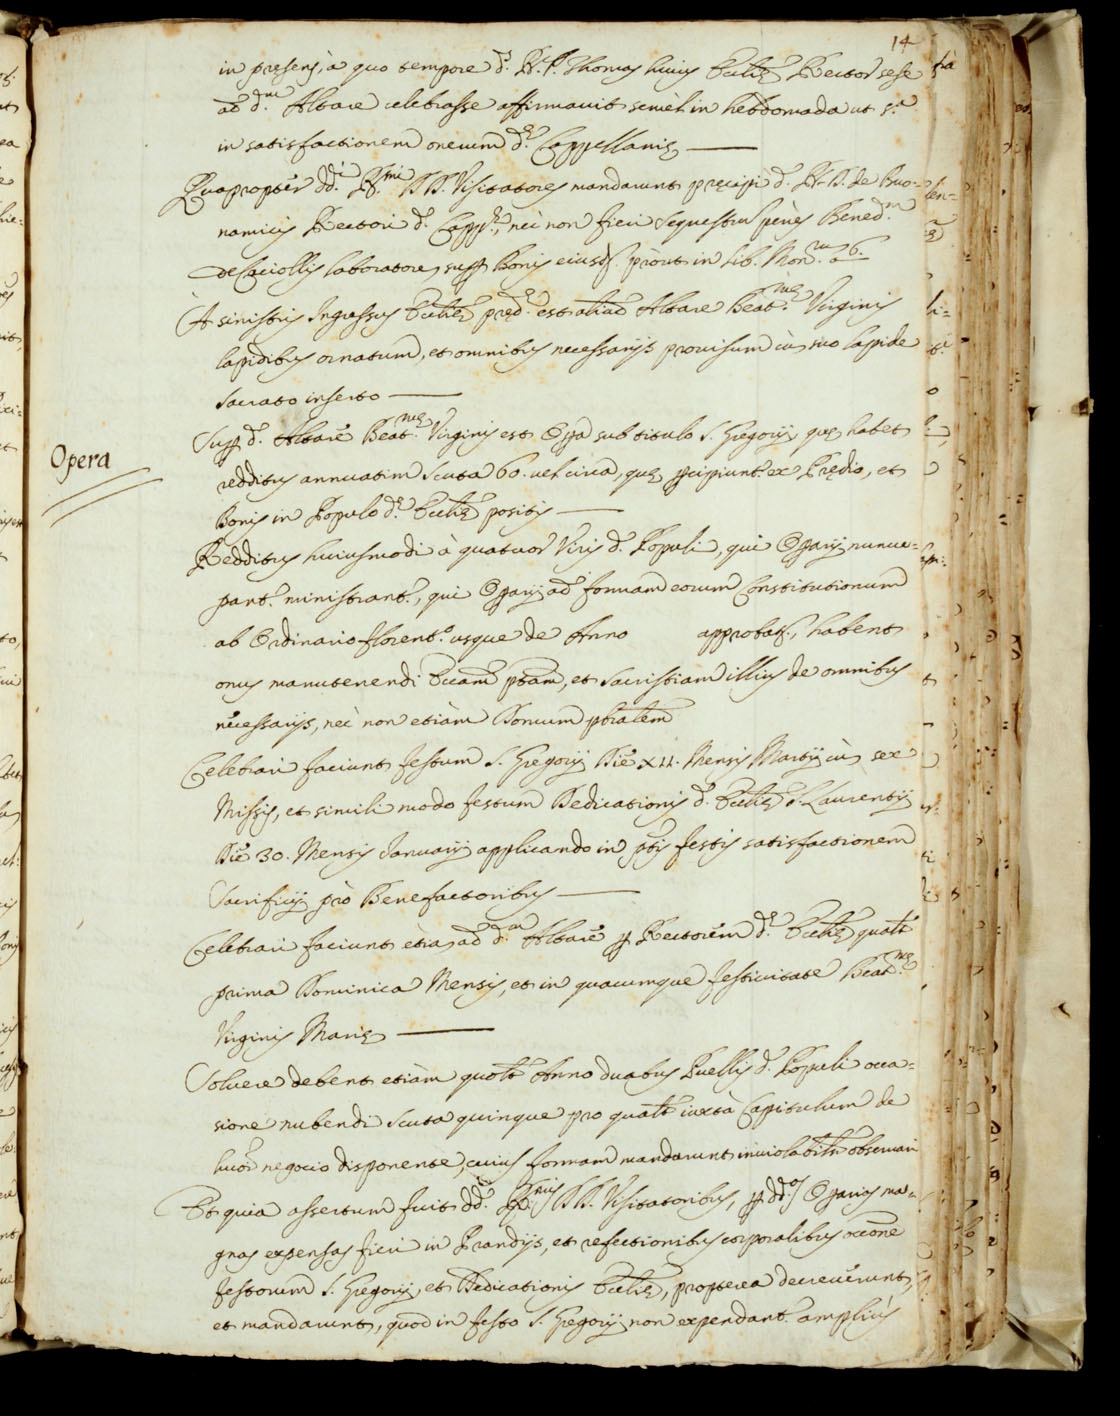 14
in presens, à quo tempore d.s R.s P. Thomas huius Eccliȩ Rector sese
ad d.um Altare celebrasse affirmauit semèl in hebdomada ut s.a
in satisfactionem onerum d.ȩ Cappellaniȩ
Quapropter dd.i R.mi DD. Visitatores mandarunt precipi d. R. D. de Buo-
namicis Rectori d.ȩ Capp.ȩ, nec non fieri sequestru penès Bened.m
de Caciollis laboratorem sup Bonis eiusd. proùt in Lib. Mon.rum a 6.
A sinistris Ingressus Eccliȩ pred.ȩ est aliud Altare Beat.mȩ Virginis
lapidibus ornatum, et omnibus necessarijs prouisum cù suo lapide
sacrato inserto
Opera
Sup d.o Altare Beat.mȩ Virginis est Opa sub titulo S. Gregorij, quȩ habet
redditus annuatim scuta 60. uel circa, quȩ pcipiunt.r ex Prȩdio, et
Bonis in Populo d.ȩ Eccliȩ positis
Redditus huiusmodi à quatuor Viris d.i Populi, qui Oparij nuncu-
pant.r ministrant.r, qui Oparij ad formam eorum Constitutionum
ab Ordinario florent.o usque de Anno approbat., habent
onus manutenendi Eccam ptam, et Sacristiam illius de omnibus
necessarijs, nec non etiàm Domum pbralem
Celebrari faciunt festum S. Gregorij Die XII. Mensis Martij cù sex
Missis, et simili modo festum Dedicationis d.ȩ Eccliȩ S. Laurentij
Die 30. Mensis Ianuarij applicando in ptis festis satisfactionem
Sacrificij prò Benefactoribus
Celebrari faciunt etià ad d.um Altare p Rectorem d.ȩ Eccliȩ qualt
prima Dominica Mensis, et in quacumque festiuitate Beat.mȩ
Virginis Mariȩ
Soluere debent etiàm quolt Anno duabus Puellis d.i Populi occa-
sione nubendi scuta quinque pro qualt iuxtà Capitulum de
huor negocio disponente, cuius formam mandarunt inuiolabilr obseruari
Et quia assertum fuit dd.s R.mis DD. Visitatoribus, p dd.os Oparios ma-
gnas expensas fieri in Prandijs, et refectionibus corporalibus occone
festorum S. Gregorij, et Dedicationis Eccliȩ, propterea decreuerunt,
et mandarunt, quod in festo S. Gregorij non expendant.r ampliùs